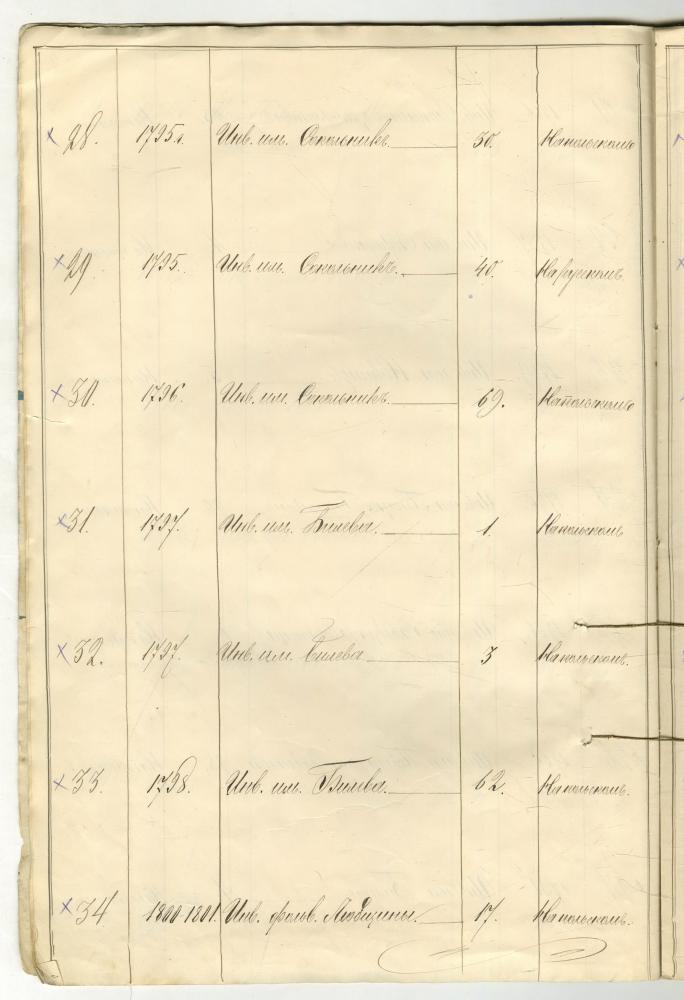 28. 1795 г. Инв. им. Сокольникъ. 30. На польскомъ
29 1795. Инв. им. Сокольникъ. 40. На русскомъ.
30. 1796. Инв. им. Сокольникъ. 69. На польскомъ
31. 1797. Инв. им. Билева. 1. На польскомъ
32. 1797. Инв. им. Билева 3 На польскомъ.
33. 1798. Инв. им. Билева. 62. На польскомъ.
34 1800-1801. Инв. фольв. 17. На польскомъ.